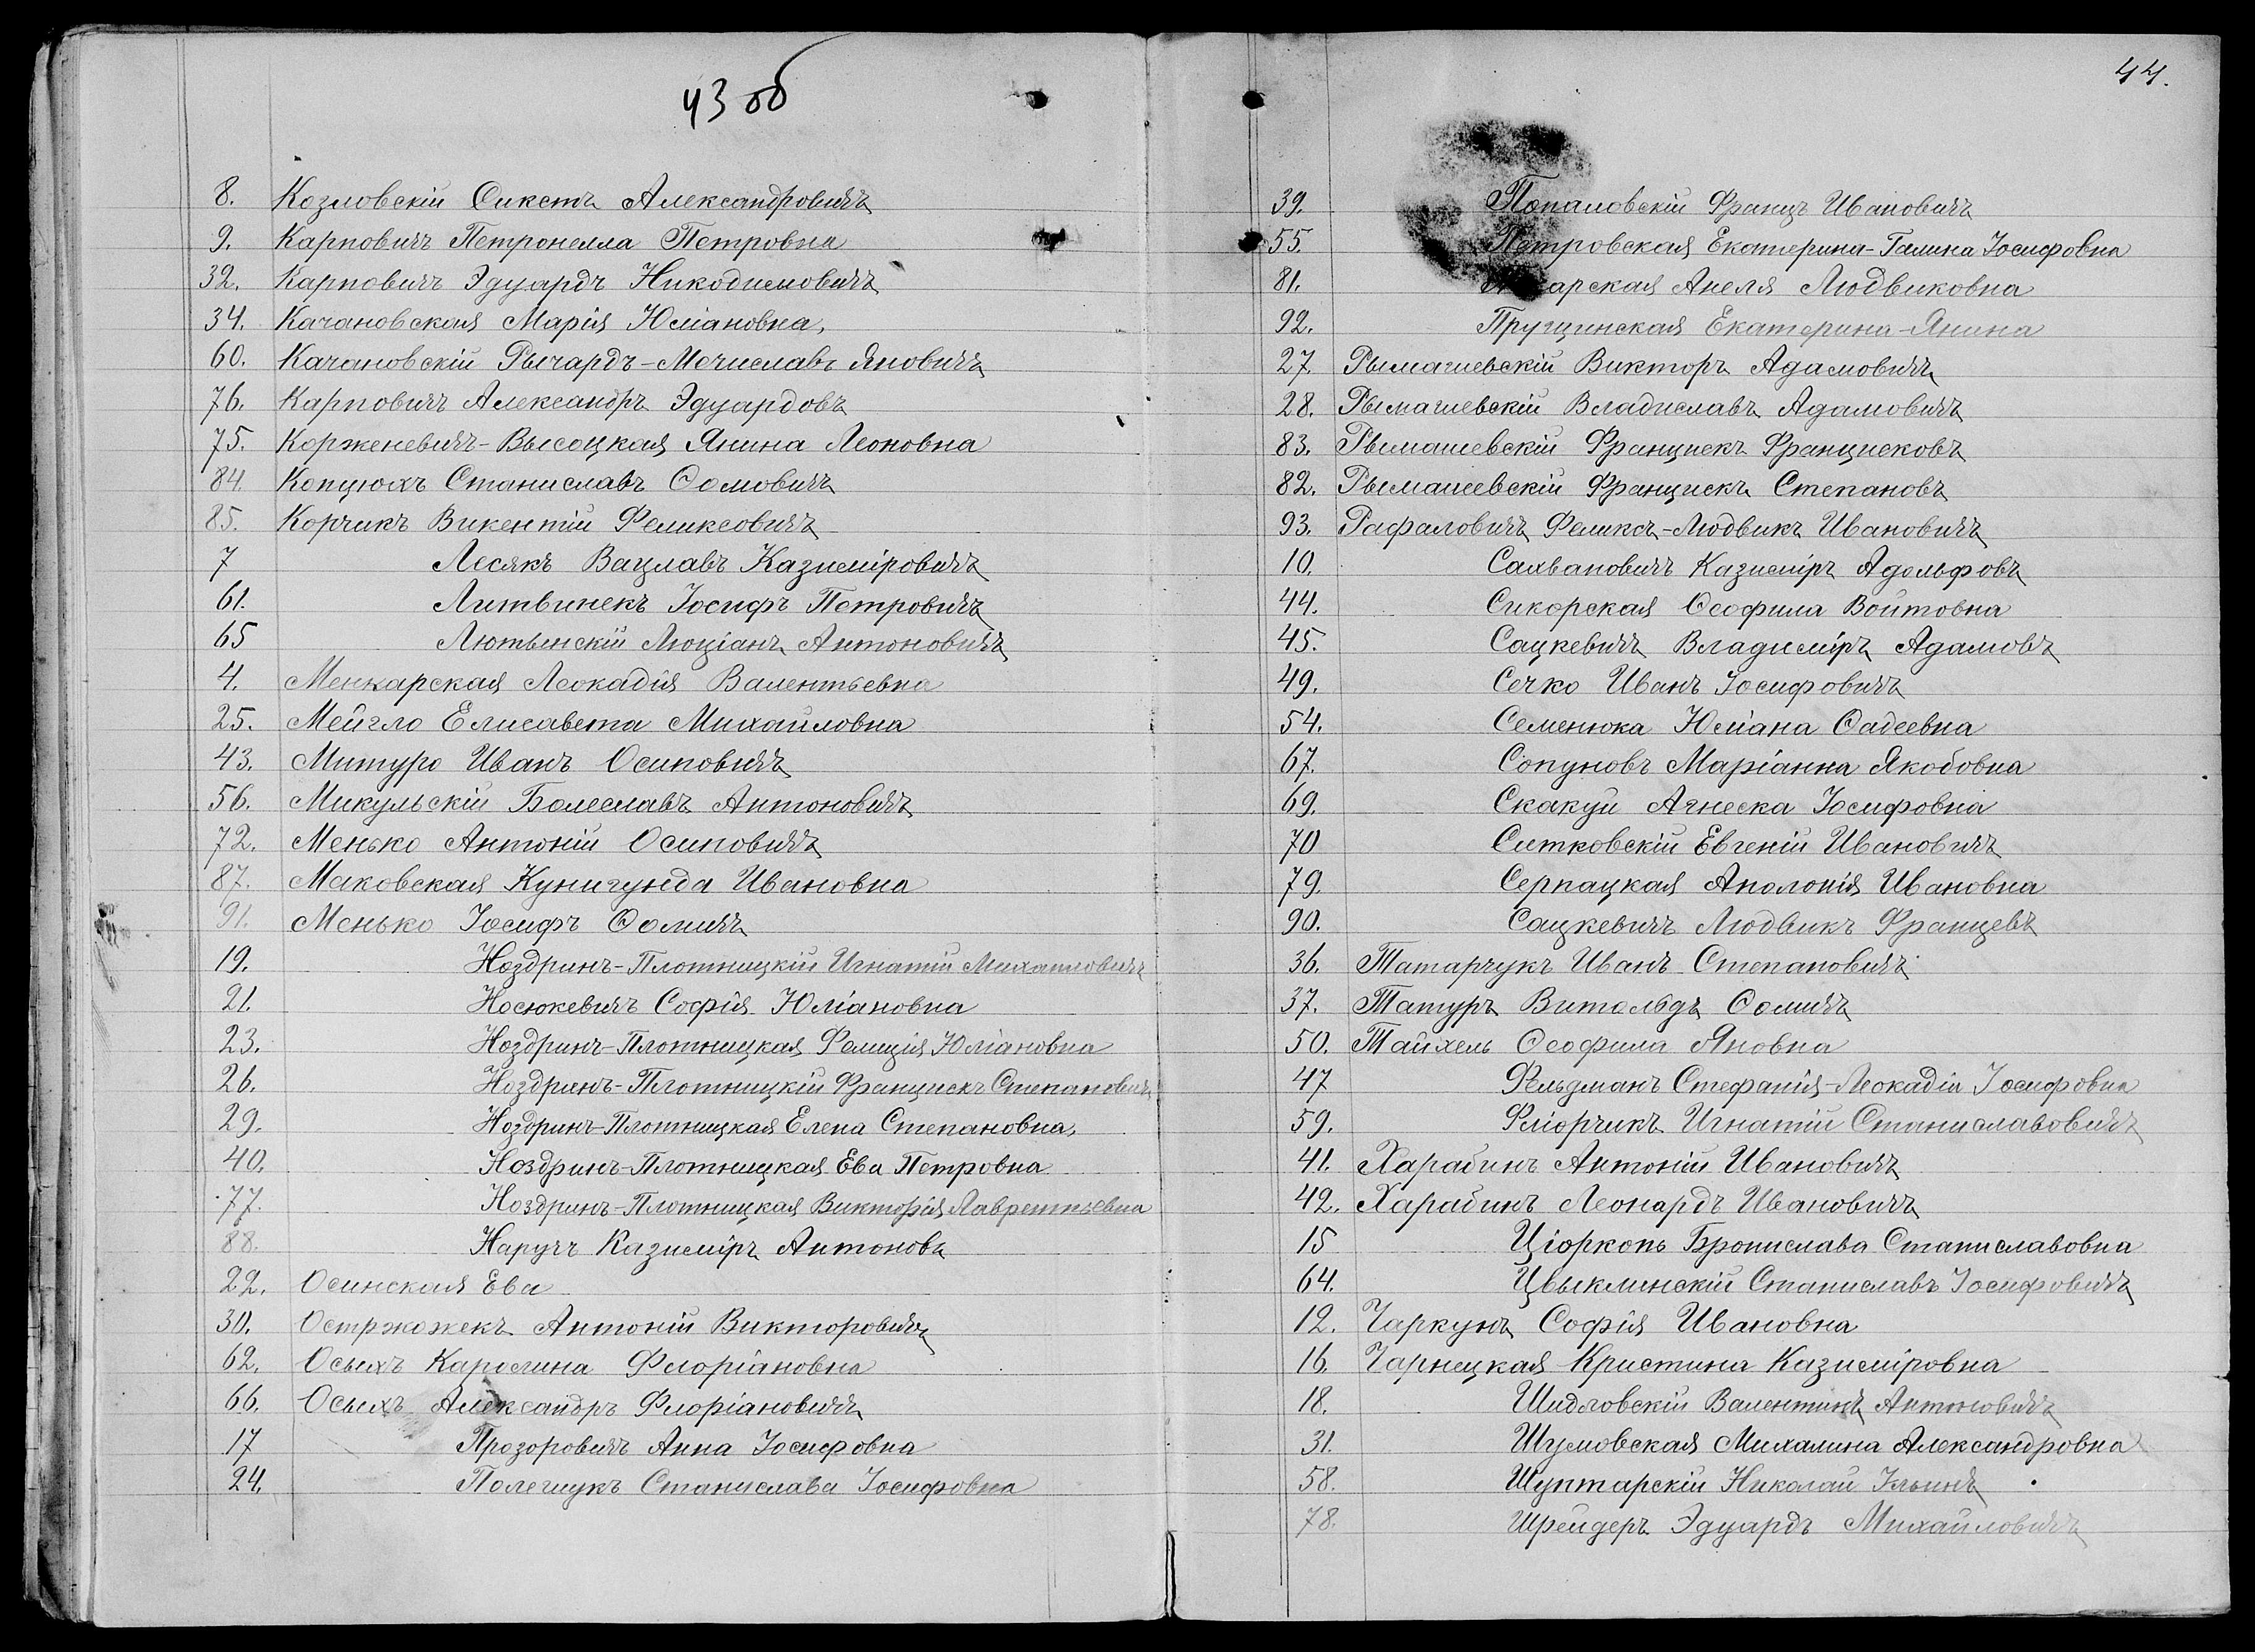 43 об
8. Козловскій Сикстъ Александровичъ
9. Карповичъ Петронелла Петровна
32. Карповичъ Эдуардъ Никодимовичъ
34. Качановская Марія Юліановна,
60. Качановскій Рычардъ-Мечиславъ Яновичъ
76. Карповичъ Александръ Эдуардовъ
75. Корженевичъ-Высоцкая Янина Леоновна
84. Копцюхъ Станиславъ Ѳомовичъ
85. Корчикъ Викентій Феликсовичъ
7 Лесякъ Вацлавъ Казиміровичъ
61. Литвинекъ Іосифъ Петровичъ
65 Лютынскій Люціанъ Антоновичъ
4. Менжарская Леокадія Валентьевна
25. Мейгло Елисавета Михайловна
43. Митуро Иванъ Осиповичъ
56. Микульскій Болеславъ Антоновичъ
72. Менько Антоній Осиповичъ
87. Маковская Кунигунда Ивановна
91. Менько Іосифъ Ѳомичъ
19. Ноздринъ-Плотницкій Игнатій Михайловичъ
21. Носюкевичъ Софія Юліановна
23. Ноздринъ-Плотницкая Фелиція Юліановна
26. Ноздринъ-Плотницкій Францискъ Степановичъ
29. Ноздринъ-Плотницкая Елена Степановна,
40. Ноздринъ-Плотницкая Ева Петровна
77. Ноздринъ-Плотницкая Викторія Лаврентьевна
88. Наручъ Казиміръ Антоновъ
22. Осинская Ева
30. Остржожекъ Антоній Викторовичъ
62. Осыхъ Каролина Флоріановна
66. Осыхъ Александръ Флоріановичъ
17 Прозоровичъ Анна Іосифовна
24. Полещукъ Станислава Іосифовна
44.
39. Попаловскій Францъ Ивановичъ
55. Петровская Екатерина-Галина Іосифовна
81. Анеля Людвиковна
92. Прущинская Екатерина-Янина
27 Рымашевскій Викторъ Адамовичъ
28. Рымашевскій Владиславъ Адамовичъ
83. Рымашевскій Францискъ Францисковъ
82. Рымашевскій Францискъ Степановъ
93. Рафаловичъ Феликсъ-Людвикъ Ивановичъ
10. Сахвановичъ Казиміръ Адольфовъ
44. Сикорская Ѳеофила Войтовна
45. Сацкевичъ Владиміръ Адамовъ
49. Сечко Иванъ Іосифовичъ
54. Семенюка Юліана Ѳадеевна
67. Сопуновъ Маріанна Якобовна
69. Скакуй Агнеска Іосифовна
70 Ситковскій Евгеній Ивановичъ
79. Серпацкая Аполонія Ивановна
90. Сацкевичъ Людвикъ Францевъ
36. Татарчукъ Иванъ Степановичъ
37. Татуръ Витольдъ Ѳомичъ
50. Тайхель Ѳеофила Яновна
47 Фельдманъ Стефанія-Леокадія Іосифовна
59. Фліорчикъ Игнатій Станиславовичъ
41. Харабинъ Антоній Ивановичъ
42. Харабинъ Леонардъ Ивановичъ
15 Ціорконь Бронислава Станиславовна
64. Цвыклинскій Станиславъ Іосифовичъ
12. Чаркунъ Софія Ивановна
16. Чарнецкая Кристина Казиміровна
18. Шидловскій Валентинъ Антоновичъ
31. Шумовская Михалина Александровна
58. Шуптарскій Николай Ильинъ
78. Шрейдеръ Эдуардъ Михайловичъ